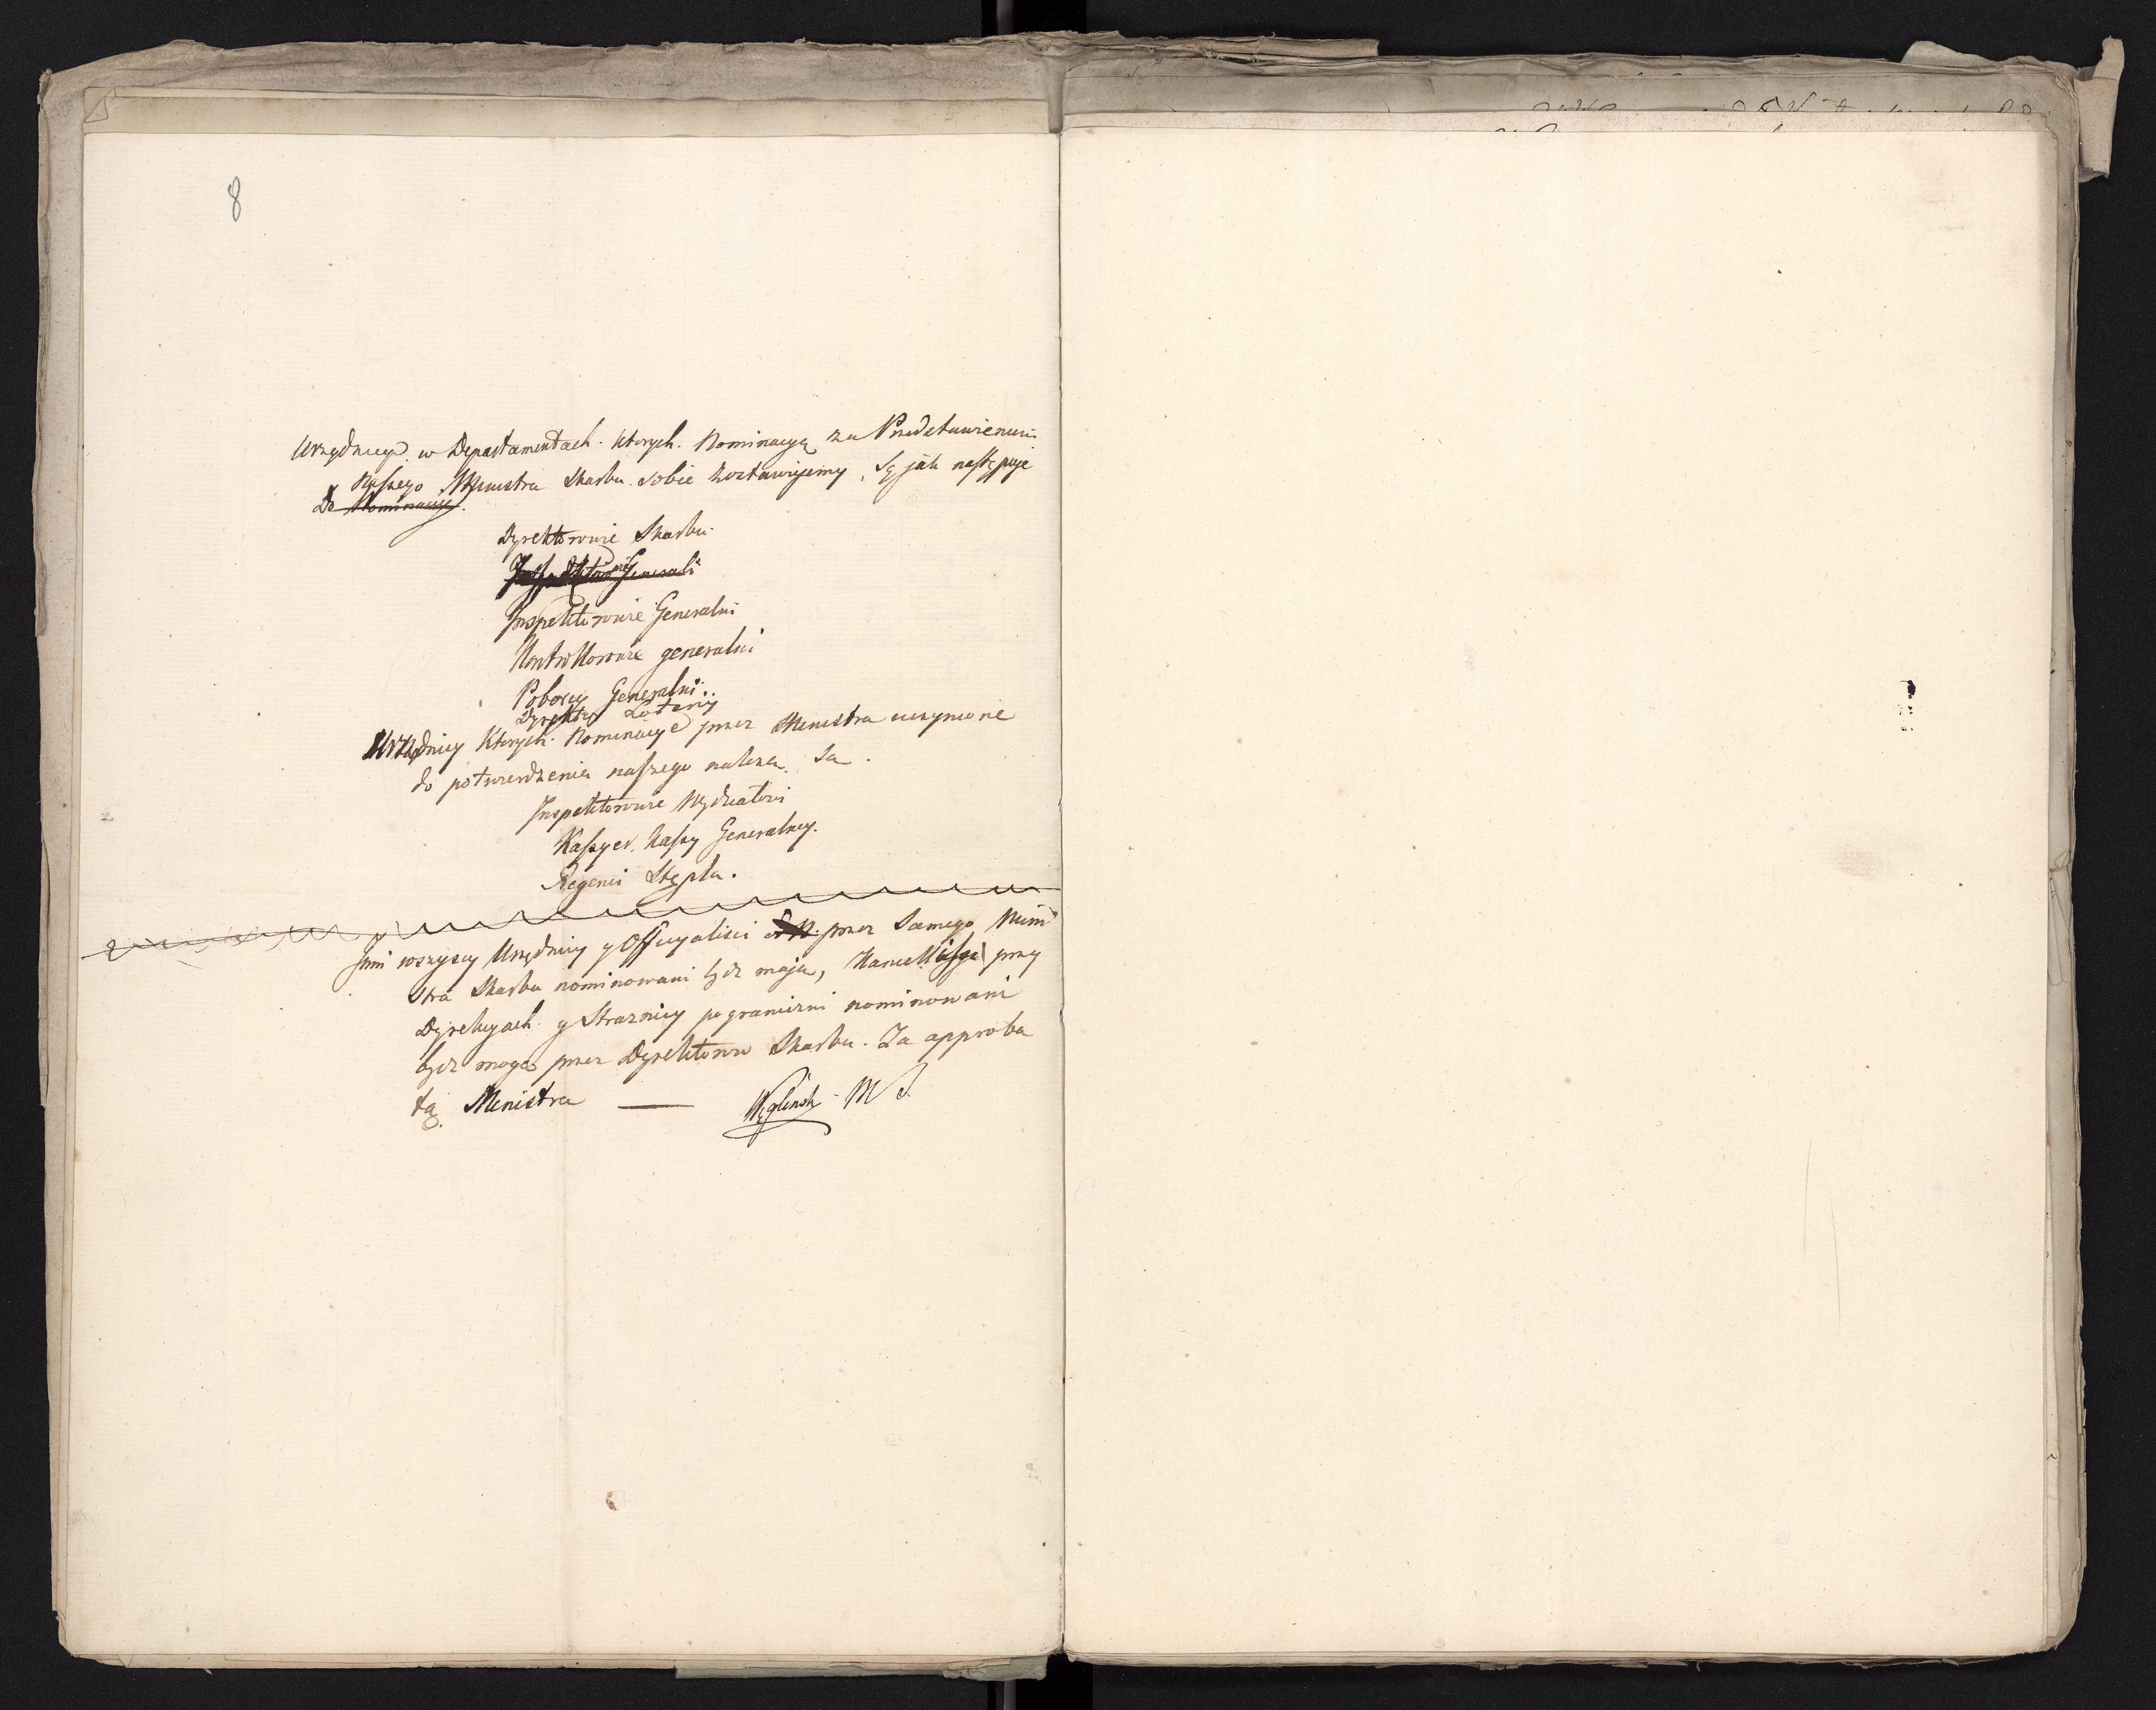 8
Urzędnicy w Departamentach. których. Nominacyą za Przedstawieniem
Naszego Ministra Skarbu. sobie zostawujemy, są jak następuje
Do Nominacyi.
Dyrektorowie Skarbu
Inspektorowie Generalni
Kontrollorowie generalni
Poborcy Generalni..
Dyrektor Loteryi
Urzędnicy których. Nominacye przez Ministra uczynione
do potwierdzenia naszego należą. są.
Inspektorowie Wydziałowi
Kassyer. Kassy Generalney.
Regenci Stępla.
Inni wszyscy Urzędnicy y Officyaliści przez Samego Mini
stra Skarbu nominowani bydz mają, Kancellisci przy
Dyrekcyach. y Straznicy pograniczni nominowani
bydz mogą przez Dyrektorow Skarbu. Za approba
tą Ministra — Węgliński M S.